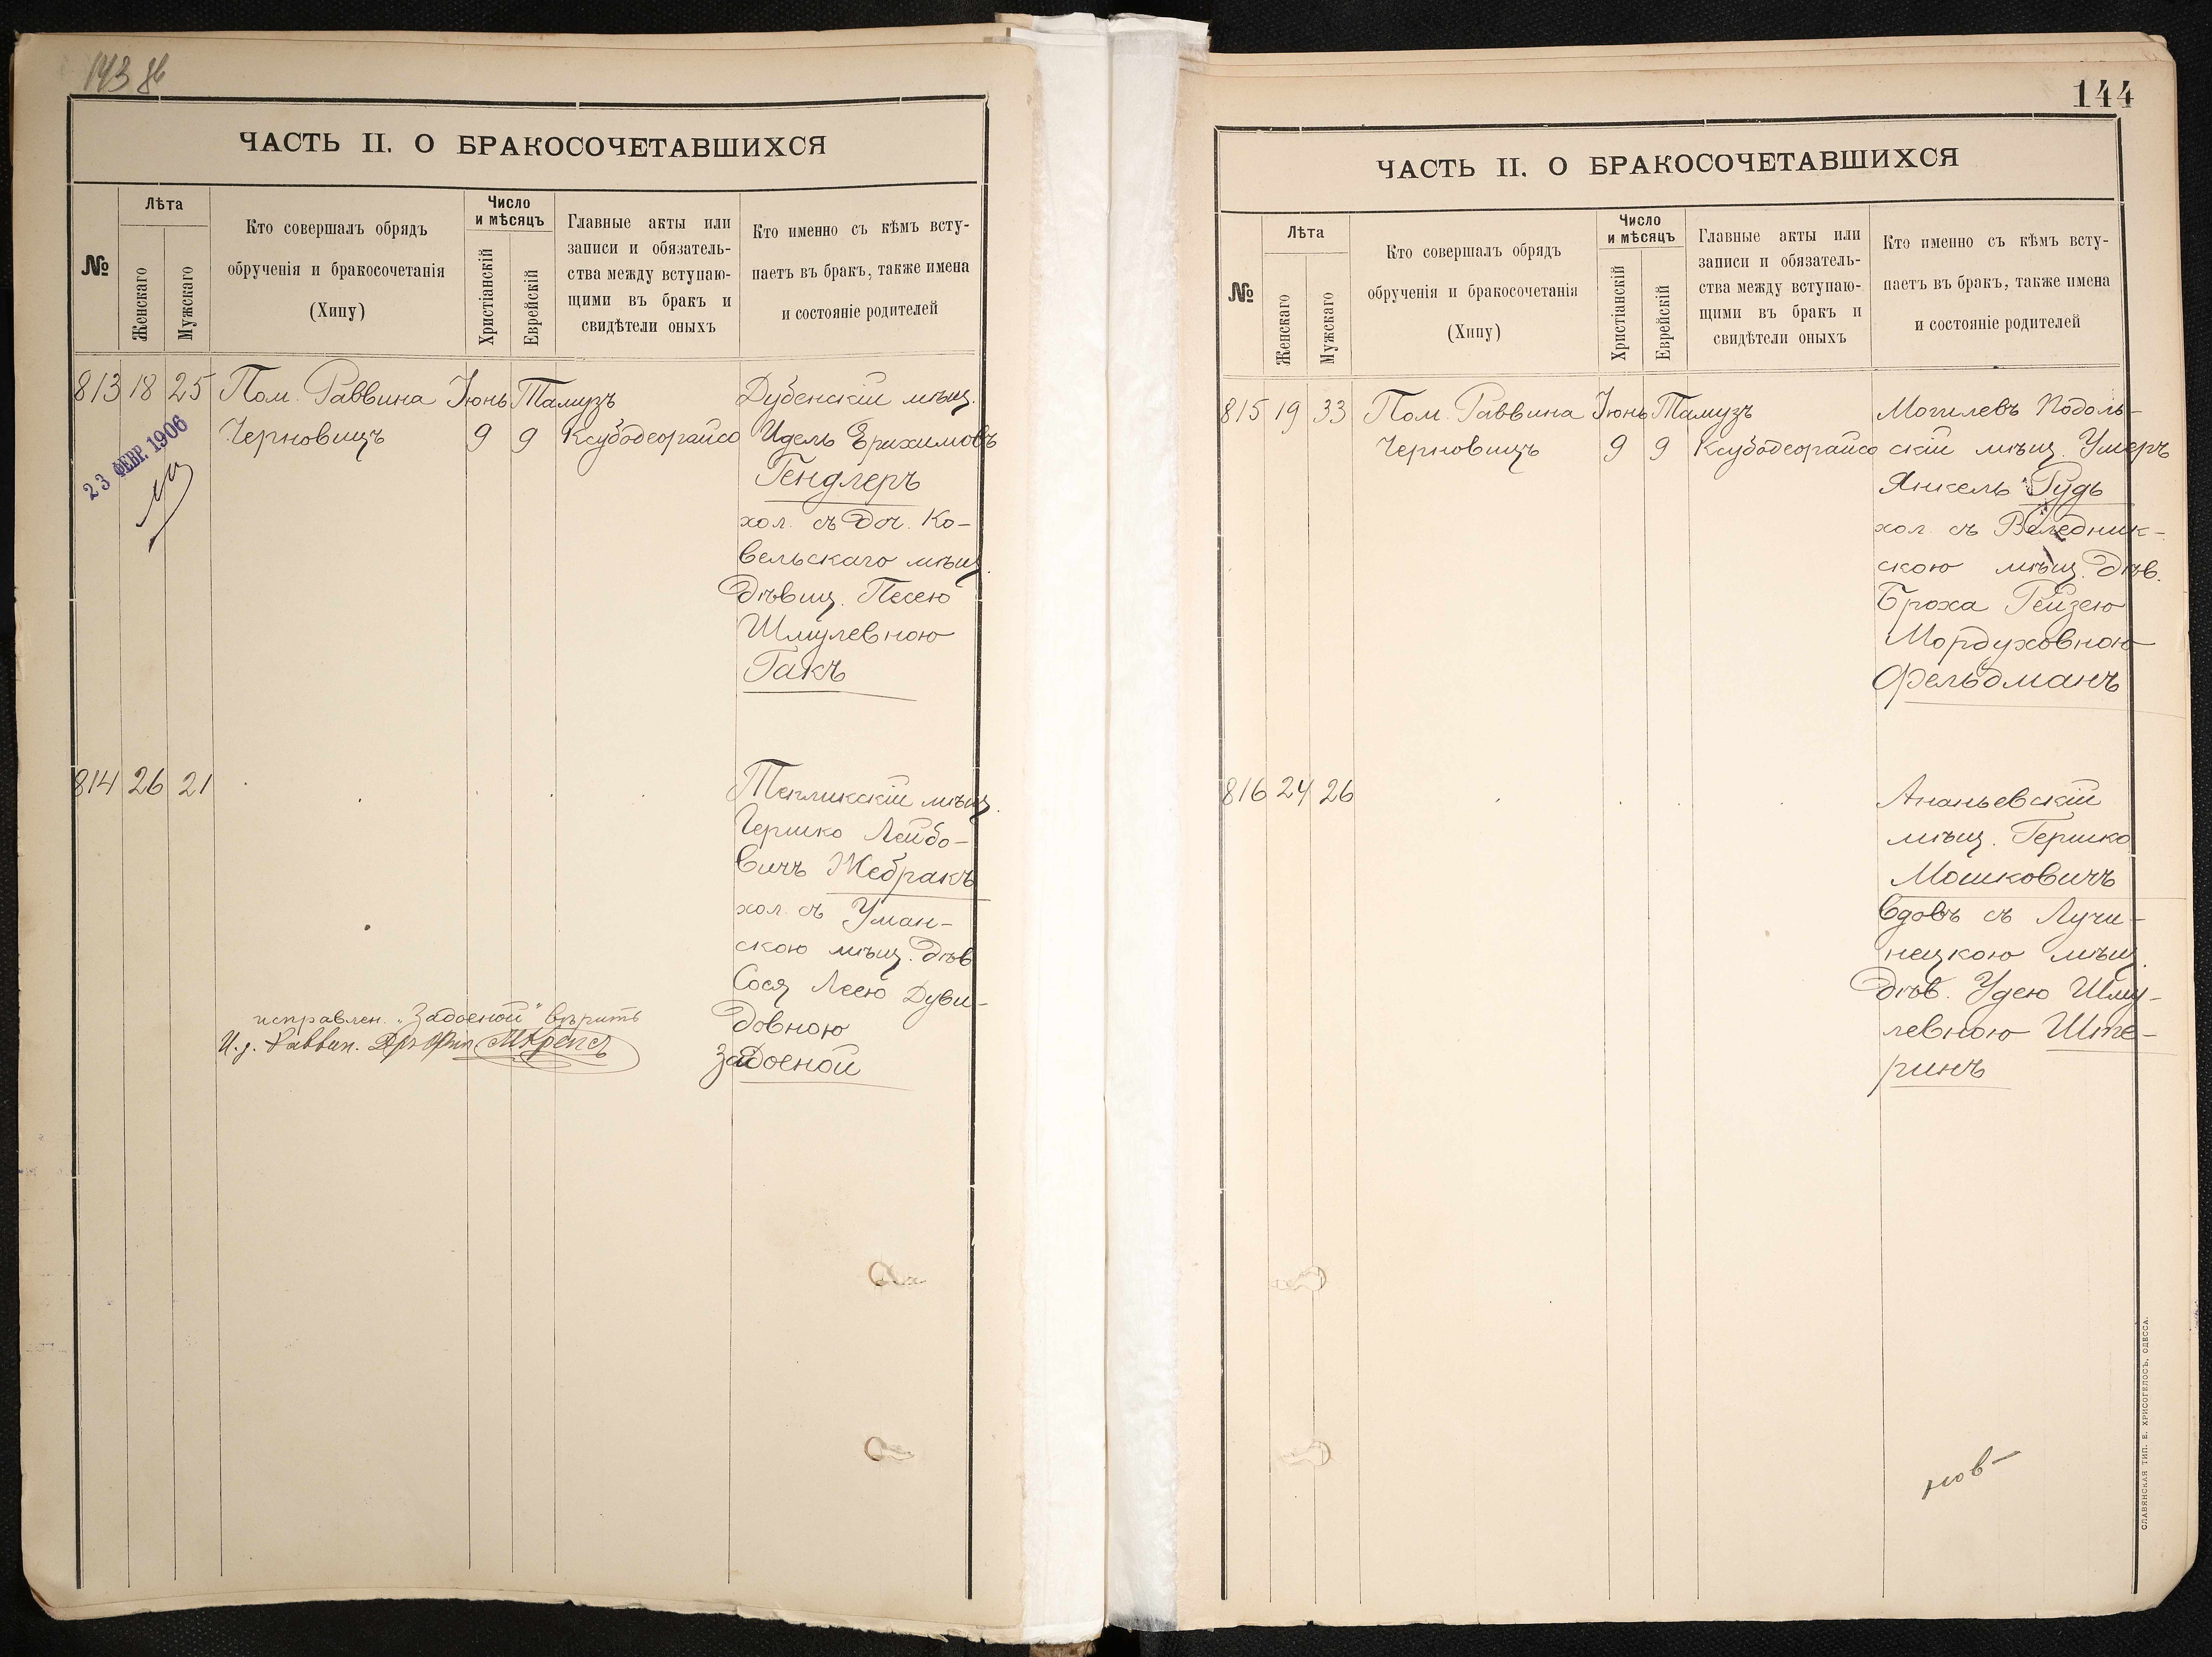 ЧАСТЬ II. О БРАКОСОЧЕТАВШИХСЯ
№
Лѣта
Женскаго
Мужскаго
Кто совершалъ обрядъ
обрученія и бракосочетанія
(Хипу)
Число
и мѣсяцъ
Христіанскій
Еврейскій
Главные акты или
записи и обязатель-
ства между вступаю-
щими въ бракъ и
свидѣтели оныхъ
Кто именно съ кѣмъ всту-
паетъ въ бракъ, также имена
и состояніе родителей
813 18 25 Пом. Раввина Іюнь Тамузъ
Черновицъ 9 9 Ксубодеорайсо
23 ФЕВР. 1906
Дубенскій мѣщ.
Идель Ерихимовъ
Гендлеръ
хол. съ Доч. Ко-
вельскаго мѣщ.
Дѣвиц. Песею
Шмулевною
Гакъ
814 26 21
Тепликскій мѣщ.
Гершко Лейбо-
вичъ Жебракъ
хол. съ Уман-
скою мѣщ. Дѣв
Сося Леею Дуви-
довною
Задоеной
исправлен. „Задоеной" вѣрить
И. д. Раввин.
144
ЧАСТЬ II. О БРАКОСОЧЕТАВШИХСЯ
№
Лѣта
Женскаго
Мужскаго
Кто совершалъ обрядъ
обрученія и бракосочетанія
(Хипу)
Число
и мѣсяцъ
Христіанскій
Еврейскій
Главные акты или
записи и обязатель-
ства между вступаю-
щими въ бракъ и
свидѣтели оныхъ
Кто именно съ кѣмъ всту-
паетъ въ бракъ, также имена
и состояніе родителей
815 19 33 Пом. Раввина Іюнь Тамузъ
Черновицъ 9 9 Ксубодеорайсо
Могилевъ Подоль-
скій мѣщ. Умеръ
Янкель Рудь
хол. съ Веледник-
скою мѣщ. Дѣв.
Броха Рейзею
Мордуховною
Фельдманъ
816 24 26
Ананьевскій
мѣщ. Гершко
Мошковичъ
вдовъ съ Лучи-
нецкою мѣщ.
Дѣв. Удею Шму-
левною Ште-
ринъ
нов-
СЛАВЯНСКАЯ ТИП. Е. ХРИСОГЕЛОСЪ, ОДЕССА.